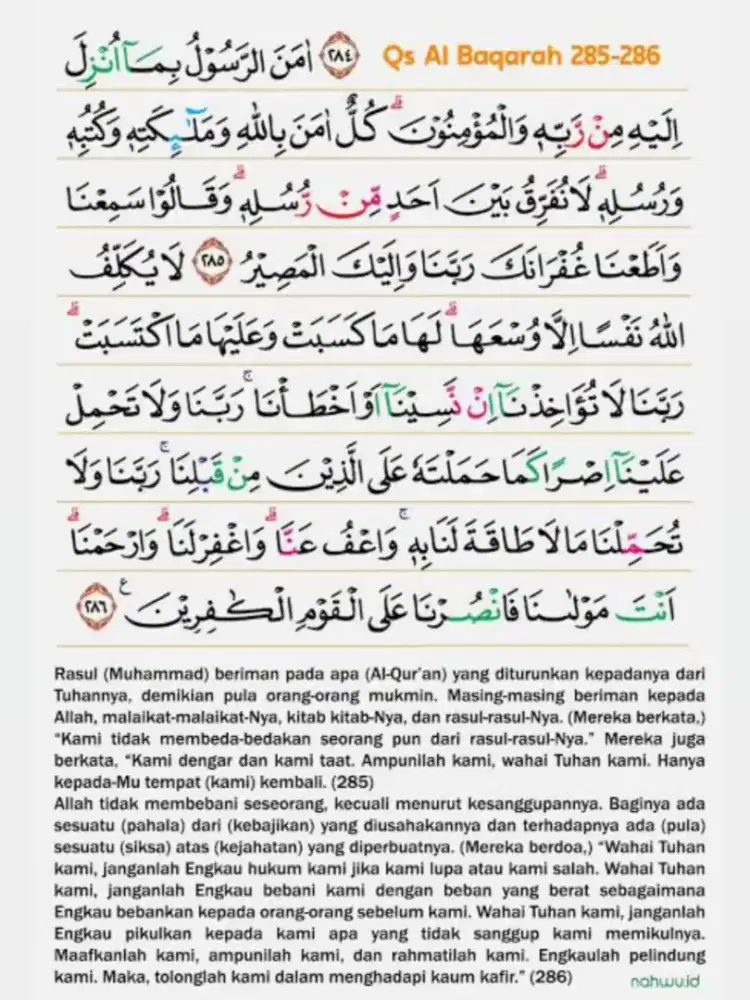 Qs Al Baqarah 285-286
﴿٢٨٤﴾ اٰمَنَ الرَّسُوْلُ بِمَآ اُنْزِلَ
اِلَيْهِ مِنْ رَّبِّهٖ وَالْمُؤْمِنُوْنَۗ كُلٌّ اٰمَنَ بِاللّٰهِ وَمَلٰۤىِٕكَتِهٖ وَكُتُبِهٖ
وَرُسُلِهٖۗ لَا نُفَرِّقُ بَيْنَ اَحَدٍ مِّنْ رُّسُلِهٖۗ وَقَالُوْا سَمِعْنَا
وَاَطَعْنَا غُفْرَانَكَ رَبَّنَا وَاِلَيْكَ الْمَصِيْرُ ﴿٢٨٥﴾ لَا يُكَلِّفُ
اللّٰهُ نَفْسًا اِلَّا وُسْعَهَاۗ لَهَا مَا كَسَبَتْ وَعَلَيْهَا مَا اكْتَسَبَتْۗ
رَبَّنَا لَا تُؤَاخِذْنَآ اِنْ نَّسِيْنَآ اَوْ اَخْطَأْنَاۚ رَبَّنَا وَلَا تَحْمِلْ
عَلَيْنَآ اِصْرًا كَمَا حَمَلْتَهٗ عَلَى الَّذِيْنَ مِنْ قَبْلِنَاۚ رَبَّنَا وَلَا
تُحَمِّلْنَا مَا لَا طَاقَةَ لَنَا بِهٖۚ وَاعْفُ عَنَّاۗ وَاغْفِرْ لَنَاۗ وَارْحَمْنَاۗ
اَنْتَ مَوْلٰىنَا فَانْصُرْنَا عَلَى الْقَوْمِ الْكٰفِرِيْنَ ࣖ ﴿٢٨٦﴾
Rasul (Muhammad) beriman pada apa (Al-Qur'an) yang diturunkan kepadanya dari
Tuhannya, demikian pula orang-orang mukmin. Masing-masing beriman kepada
Allah, malaikat-malaikat-Nya, kitab kitab-Nya, dan rasul-rasul-Nya. (Mereka berkata,)
“Kami tidak membeda-bedakan seorang pun dari rasul-rasul-Nya.” Mereka juga
berkata, “Kami dengar dan kami taat. Ampunilah kami, wahai Tuhan kami. Hanya
kepada-Mu tempat (kami) kembali. (285)
Allah tidak membebani seseorang, kecuali menurut kesanggupannya. Baginya ada
sesuatu (pahala) dari (kebajikan) yang diusahakannya dan terhadapnya ada (pula)
sesuatu (siksa) atas (kejahatan) yang diperbuatnya. (Mereka berdoa,) “Wahai Tuhan
kami, janganlah Engkau hukum kami jika kami lupa atau kami salah. Wahai Tuhan
kami, janganlah Engkau bebani kami dengan beban yang berat sebagaimana
Engkau bebankan kepada orang-orang sebelum kami. Wahai Tuhan kami, janganlah
Engkau pikulkan kepada kami apa yang tidak sanggup kami memikulnya.
Maafkanlah kami, ampunilah kami, dan rahmatilah kami. Engkaulah pelindung
kami. Maka, tolonglah kami dalam menghadapi kaum kafir.” (286)
nahwu.id